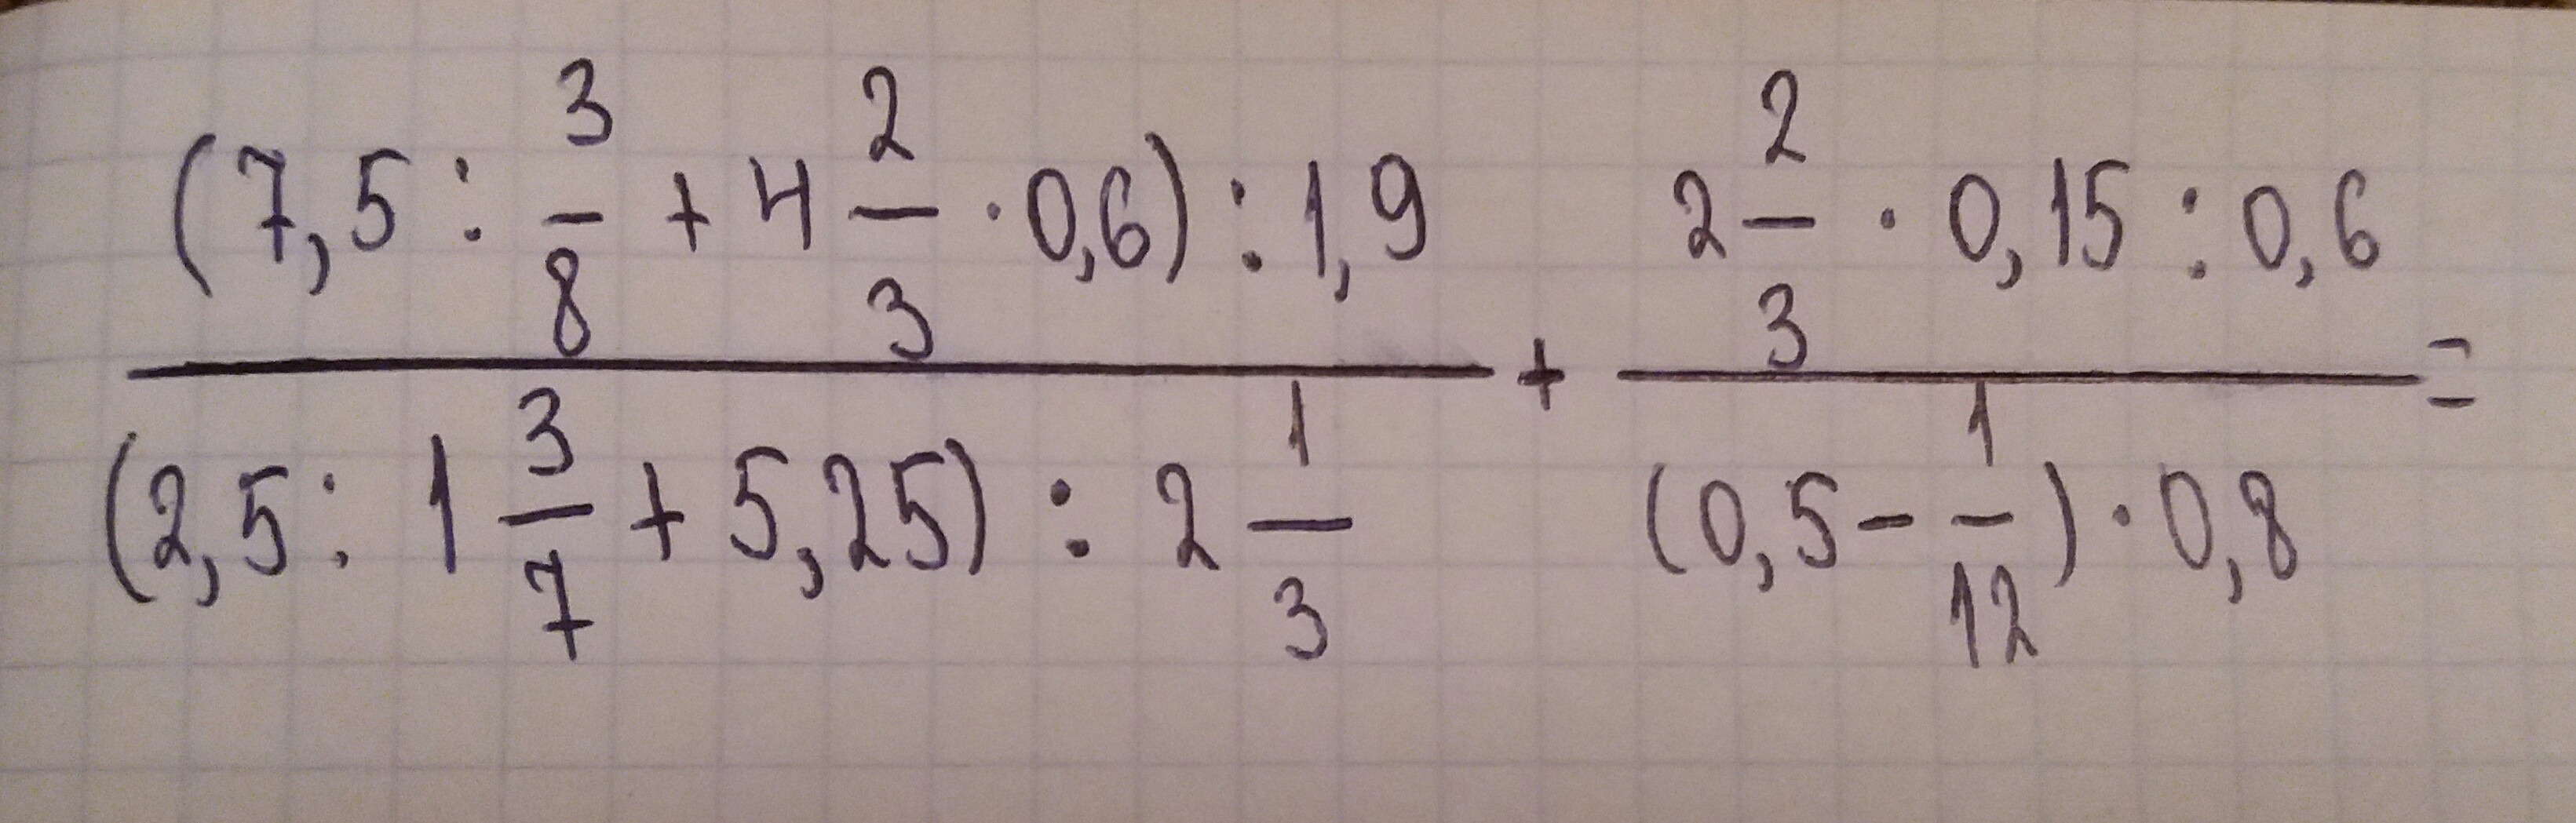 (7,5 : 3/8 + 4 2/3 · 0,6) : 1,9 / (2,5 : 1 3/7 + 5,25) : 2 1/3 + 2 2/3 · 0,15 : 0,6 / (0,5 - 1/12) · 0,8 =